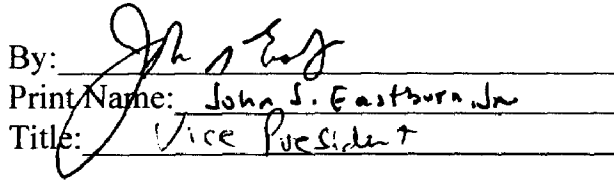 By:
Print Name: John S. Eastburn, Jr
Title: Vice President